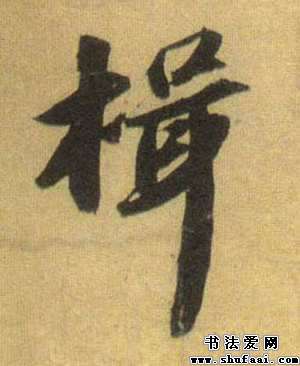 楫
书法爱网
www.shufaai.com